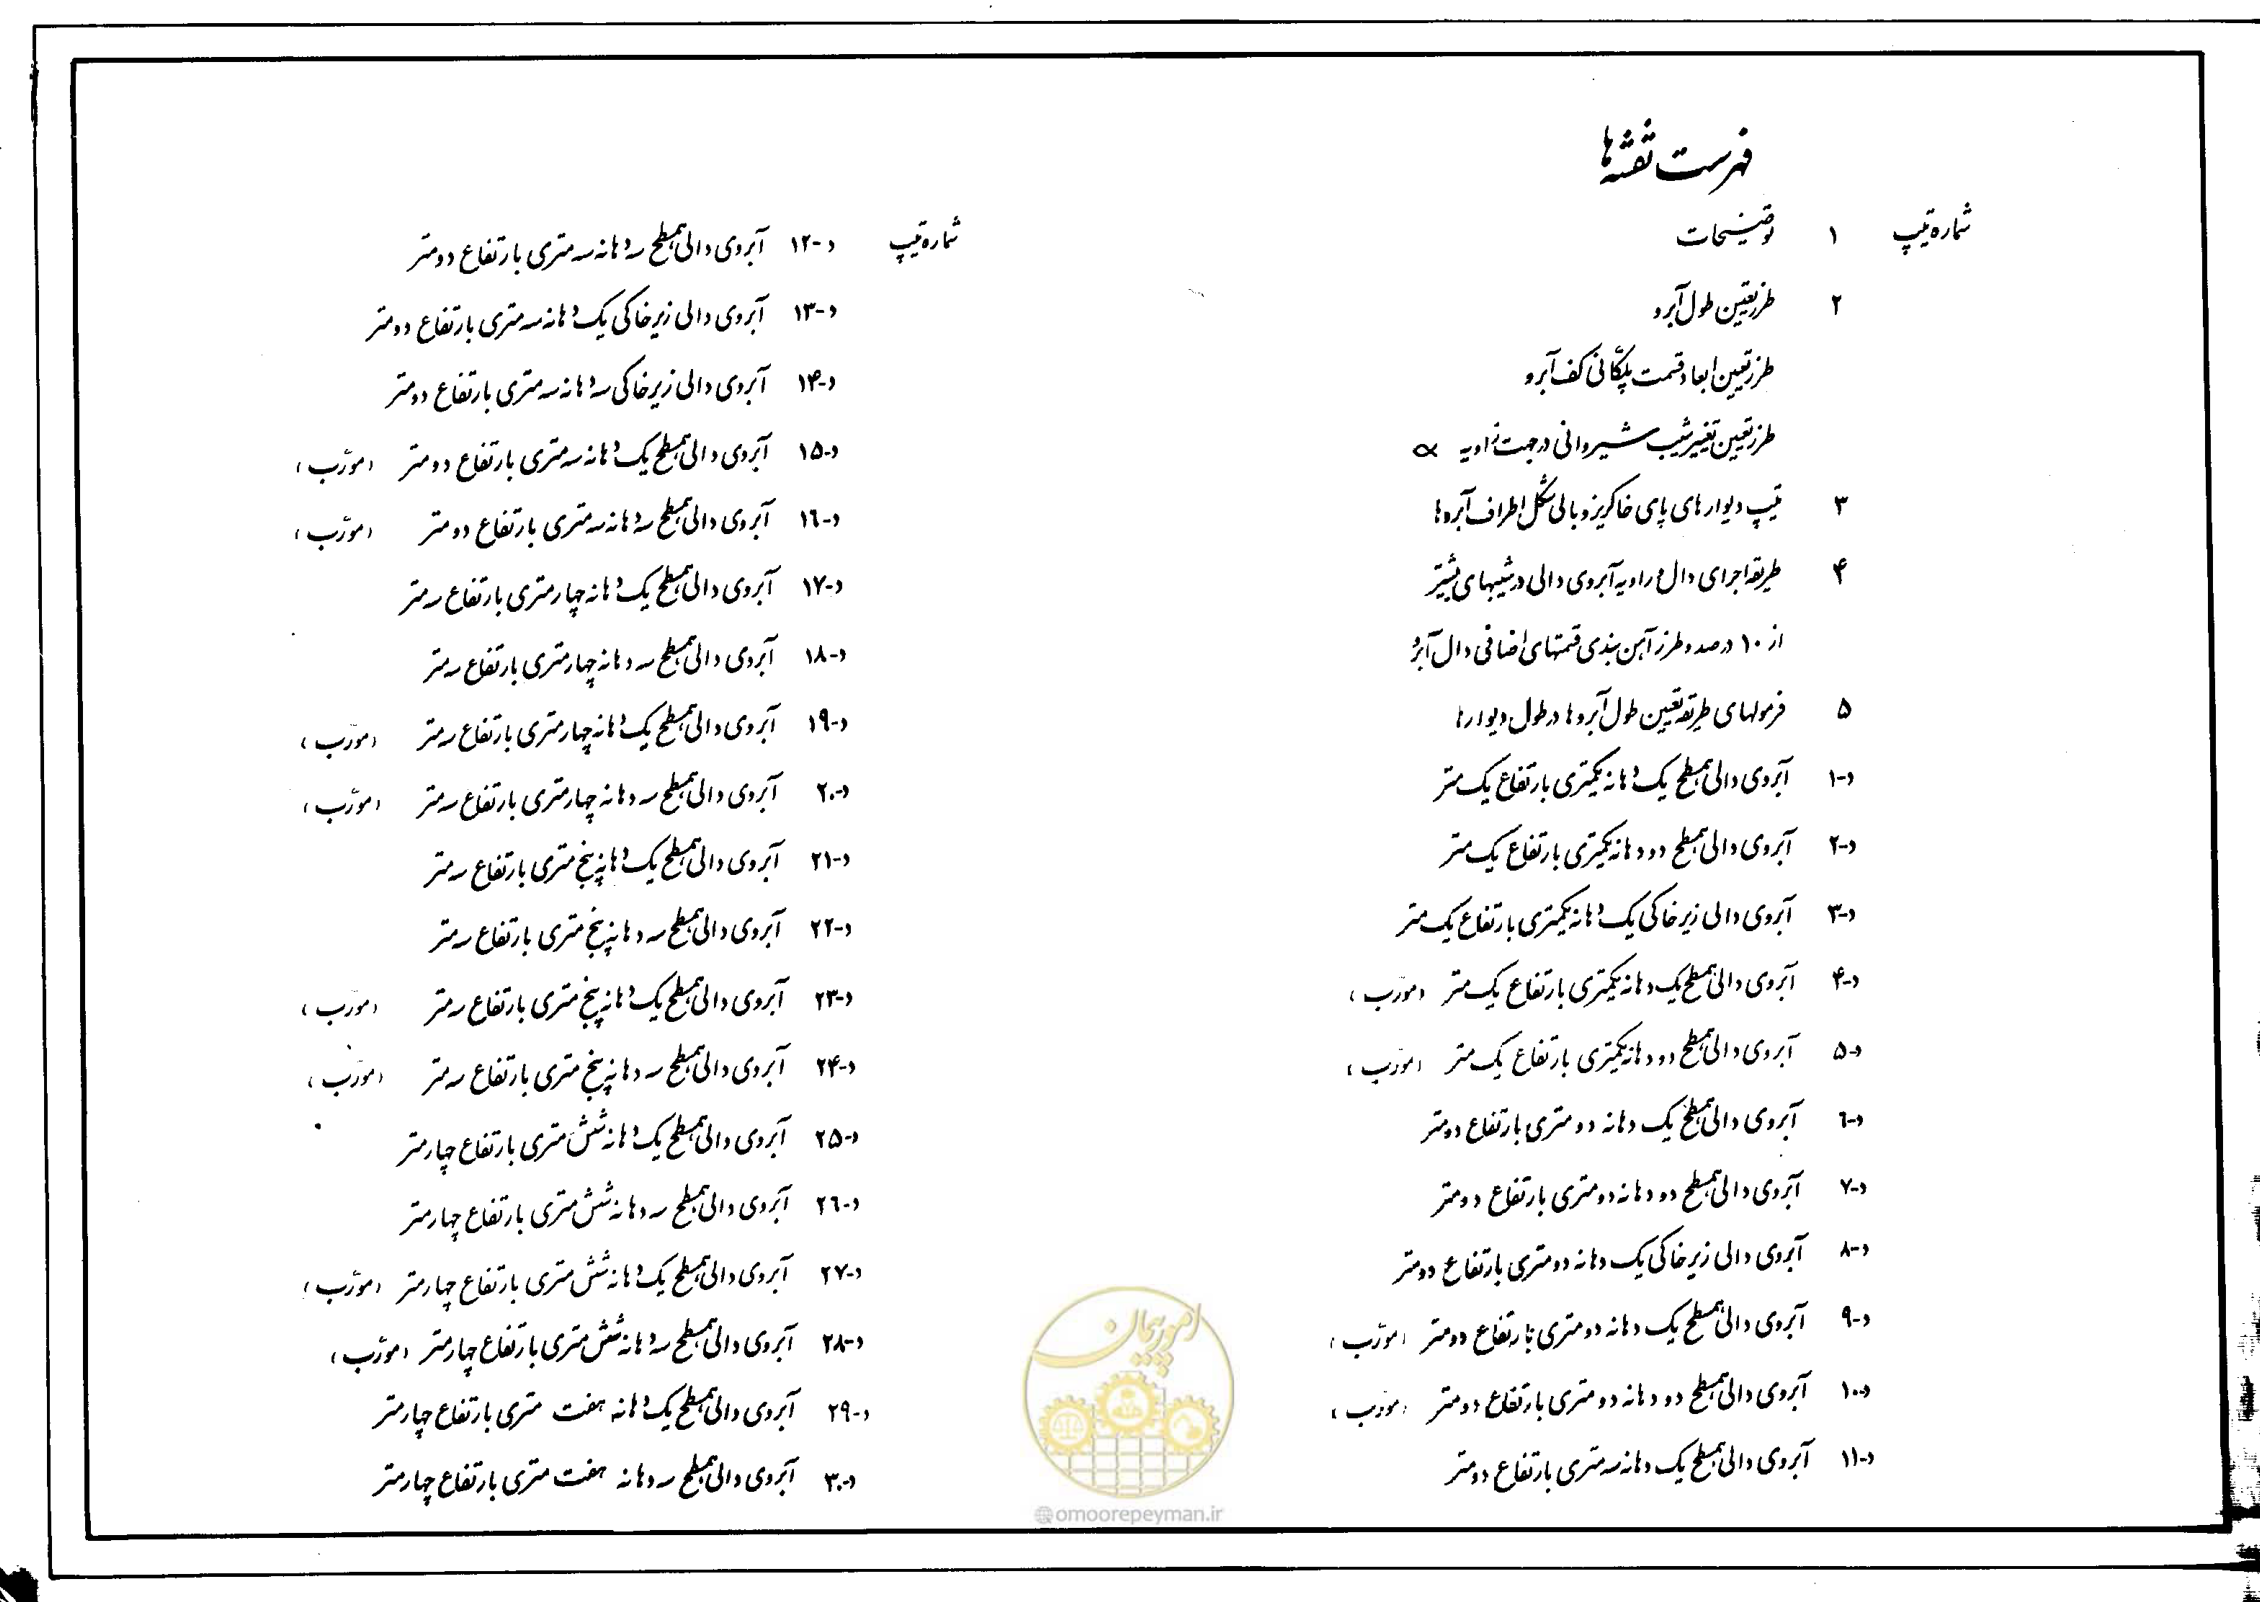 فهرست نقشه‌ها
شماره تیپ ۱ توضیحات
۲ طرز تعیین طول آبرو
طرز تعیین ابعاد قسمت پلکانی کف آبرو
طرز تعیین تغییر شیب شیروانی در جهت زاویه α
۳ تیپ دیوارهای پای خاکریز و بالی شکل اطراف آبروها
۴ طریقه اجرای دال و زاویه آبروی دالی در شیبهای بیشتر
از ۱۰ درصد و طرز آهن بندی قسمتهای اضافی دال آبرو
۵ فرمولهای طریقه تعیین طول آبروها در طول دیوارها
د-۱ آبروی دالی همسطح یک دهانه یکمتری بارتفاع یک متر
د-۲ آبروی دالی همسطح دو دهانه یکمتری بارتفاع یک متر
د-۳ آبروی دالی زیر خاکی یک دهانه یکمتری بارتفاع یک متر
د-۴ آبروی دالی همسطح یک دهانه یکمتری بارتفاع یک متر (مورّب)
د-۵ آبروی دالی همسطح دو دهانه یکمتری بارتفاع یک متر (مورّب)
د-۶ آبروی دالی همسطح یک دهانه دو متری بارتفاع دو متر
د-۷ آبروی دالی همسطح دو دهانه دو متری بارتفاع دو متر
د-۸ آبروی دالی زیر خاکی یک دهانه دو متری بارتفاع دو متر
د-۹ آبروی دالی همسطح یک دهانه دو متری بارتفاع دو متر (مورّب)
د-۱۰ آبروی دالی همسطح دو دهانه دو متری بارتفاع دو متر (مورّب)
د-۱۱ آبروی دالی همسطح یک دهانه سه متری بارتفاع دو متر
شماره تیپ د-۱۲ آبروی دالی همسطح سه دهانه سه متری بارتفاع دو متر
د-۱۳ آبروی دالی زیر خاکی یک دهانه سه متری بارتفاع دو متر
د-۱۴ آبروی دالی زیر خاکی سه دهانه سه متری بارتفاع دو متر
د-۱۵ آبروی دالی همسطح یک دهانه سه متری بارتفاع دو متر (مورّب)
د-۱۶ آبروی دالی همسطح سه دهانه سه متری بارتفاع دو متر (مورّب)
د-۱۷ آبروی دالی همسطح یک دهانه چهار متری بارتفاع سه متر
د-۱۸ آبروی دالی همسطح سه دهانه چهار متری بارتفاع سه متر
د-۱۹ آبروی دالی همسطح یک دهانه چهار متری بارتفاع سه متر (مورّب)
د-۲۰ آبروی دالی همسطح سه دهانه چهار متری بارتفاع سه متر (مورّب)
د-۲۱ آبروی دالی همسطح یک دهانه پنج متری بارتفاع سه متر
د-۲۲ آبروی دالی همسطح سه دهانه پنج متری بارتفاع سه متر
د-۲۳ آبروی دالی همسطح یک دهانه پنج متری بارتفاع سه متر (مورّب)
د-۲۴ آبروی دالی همسطح سه دهانه پنج متری بارتفاع سه متر (مورّب)
د-۲۵ آبروی دالی همسطح یک دهانه شش متری بارتفاع چهار متر
د-۲۶ آبروی دالی همسطح سه دهانه شش متری بارتفاع چهار متر
د-۲۷ آبروی دالی همسطح یک دهانه شش متری بارتفاع چهار متر (مورّب)
د-۲۸ آبروی دالی همسطح سه دهانه شش متری بارتفاع چهار متر (مورّب)
د-۲۹ آبروی دالی همسطح یک دهانه هفت متری بارتفاع چهار متر
د-۳۰ آبروی دالی همسطح سه دهانه هفت متری بارتفاع چهار متر
امور پیمان
@omoorepeyman.ir